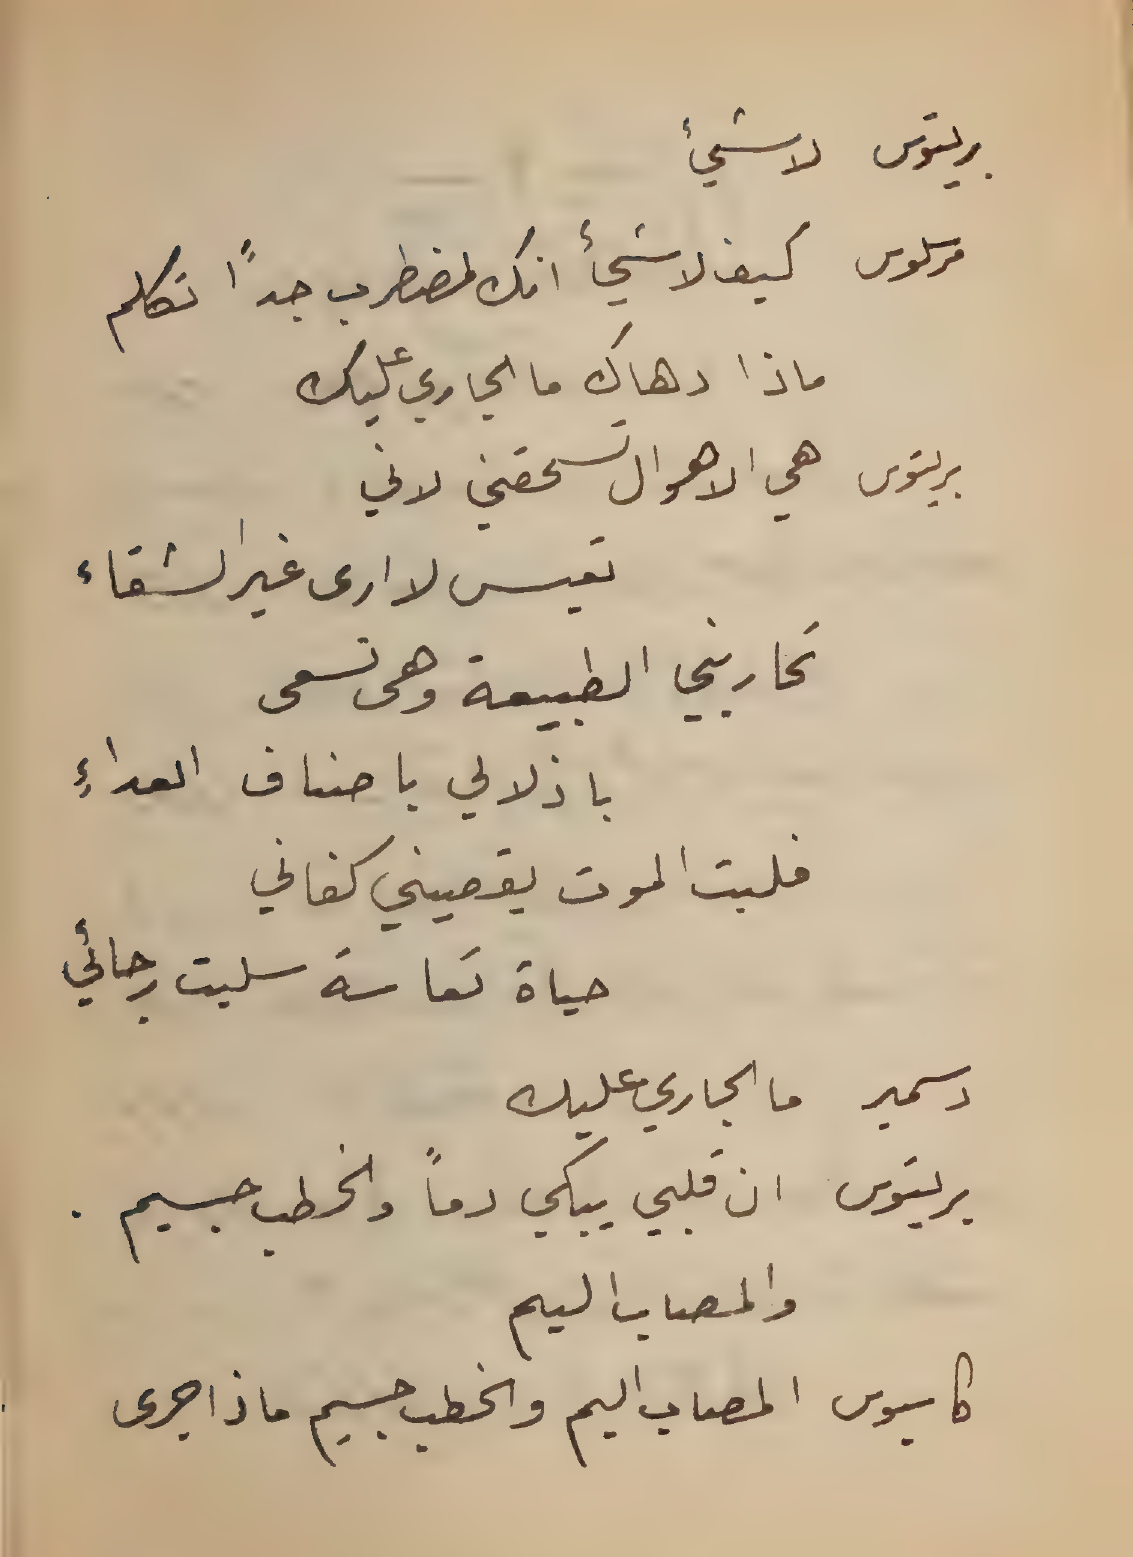 بريتوس لا شيئ
مرسلوس كيف لا شيئ انك لمضطرب جداً تكلم
ماذا دهاك ما الجاري عليك
بريتوس هي الاهوال تسحقني لاني
تعيس لا ارى غير الشقاء
تحاربني الطبيعة وهى تسعى
باذلالي باصناف العداءِ
فليت الموت يقصيني كفاني
حياة تعاسة سلبت رجائي
دسمير ما الجاري عليك
بريتوس ان قلبي يبكي دماً والخطب جسيم .
والمصاب اليم
كاسيوس المصاب اليم والخطب جسيم ماذا جرى